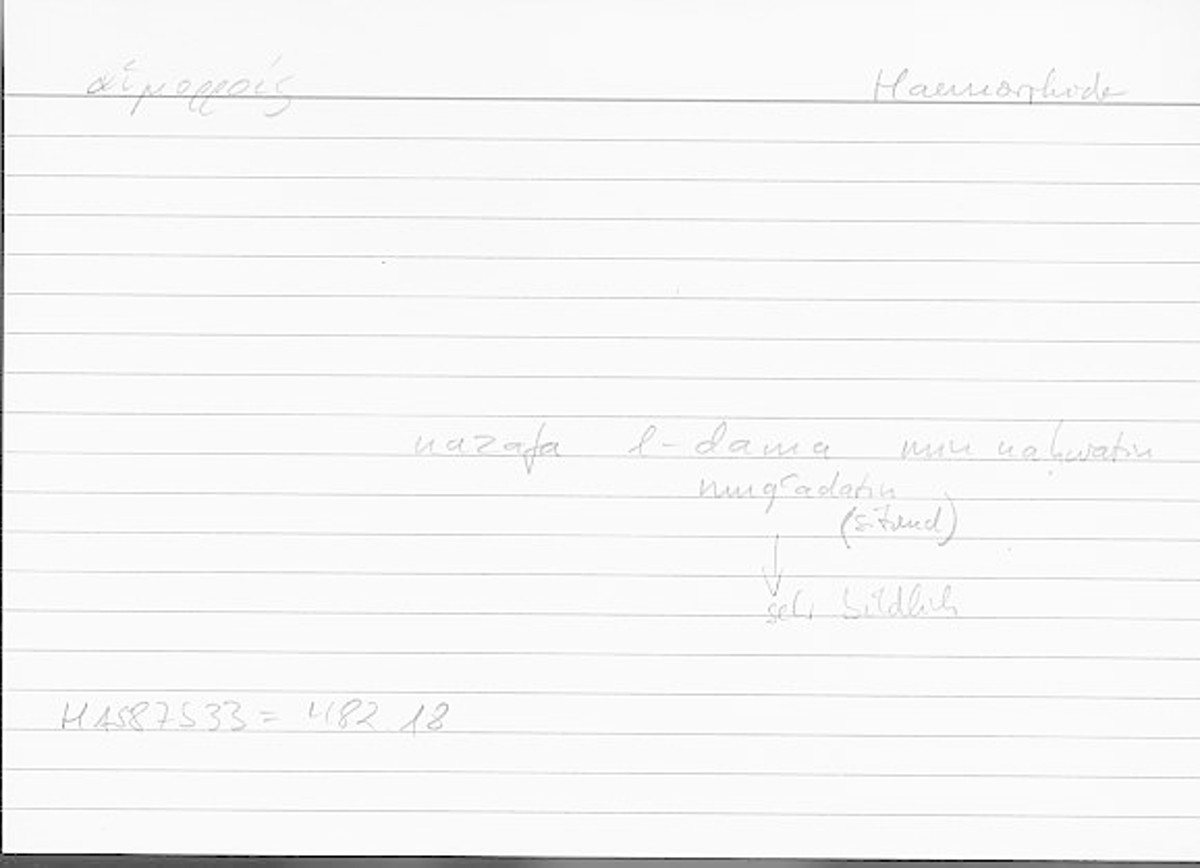 αἱμορροίς Haemorrhoide
nazafa l-dama min naḥwatin
muqʿadatin
(sitzend)
↓
sehr bildlich
H1587533 = 482.18